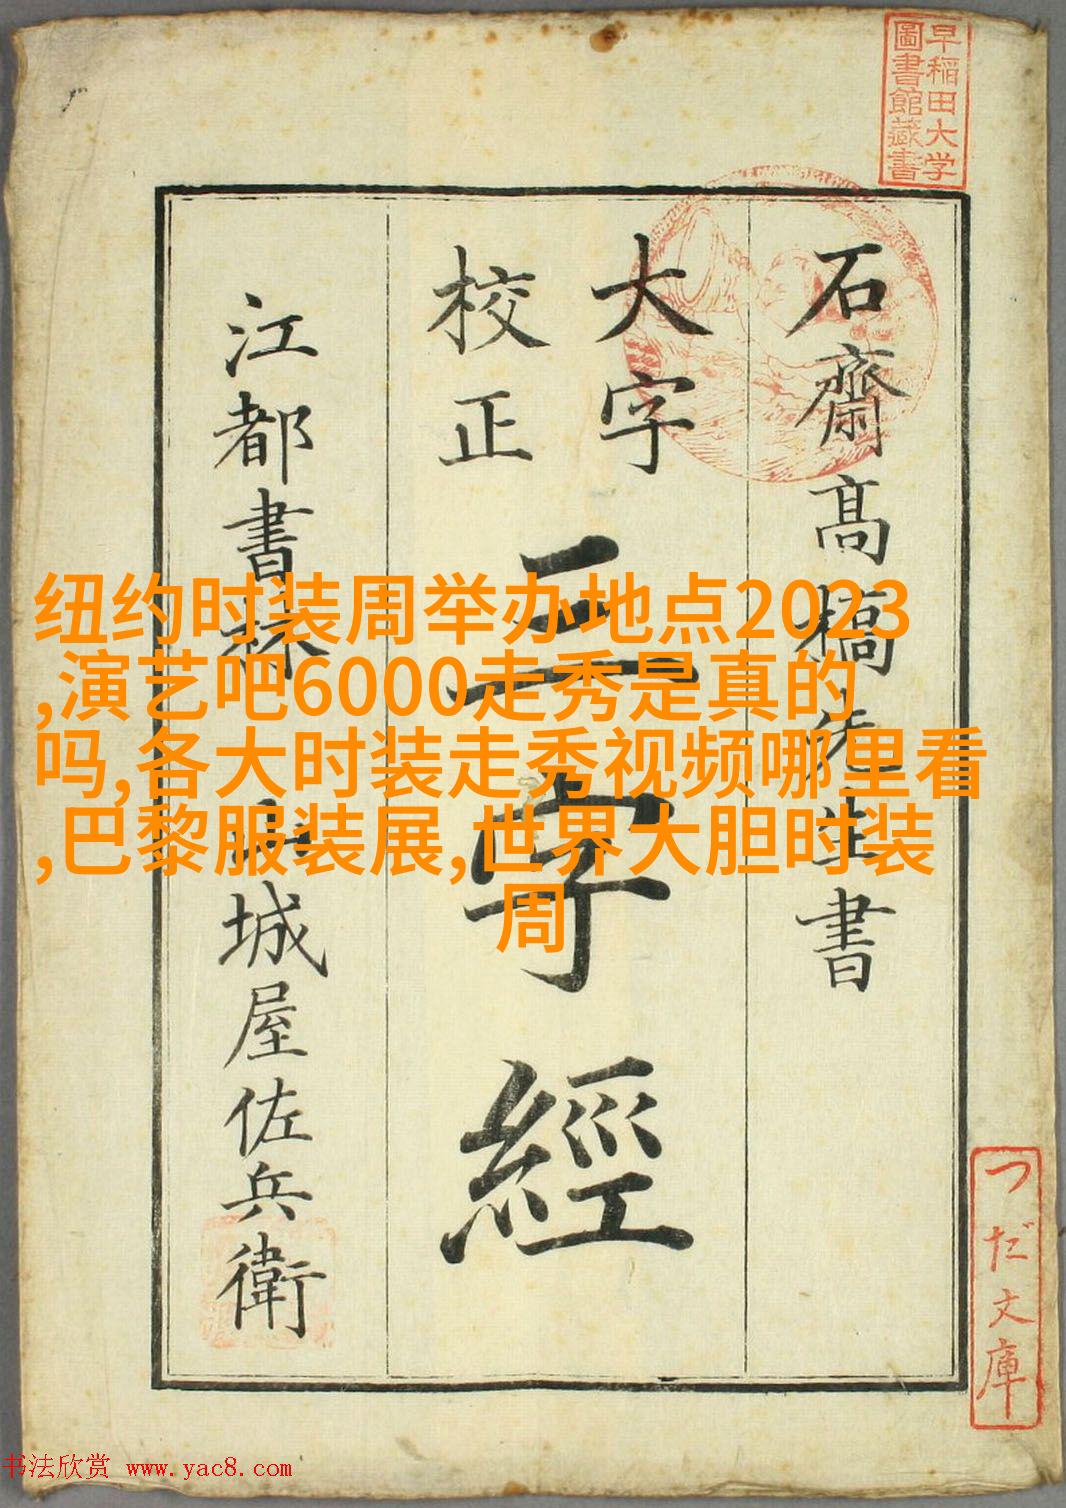 早稲田大学
圖書館藏書
石齋高橋先生書
大字
校正
三字經
江都書林
山城屋佐兵衛
纽约时装周举办地点2023
,演艺吧6000走秀是真的
吗,各大时装走秀视频哪里看
,巴黎服装展,世界大胆时装
周
つだ文庫
书法欣赏 www.yac8.com